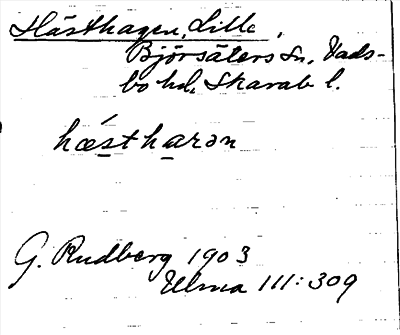 Hästhagen, Lille,
Björsäters Sn, Vads-
bo hd, Skarab l.
hǽstharən
G. Rudberg 1903
Ulma 111:309